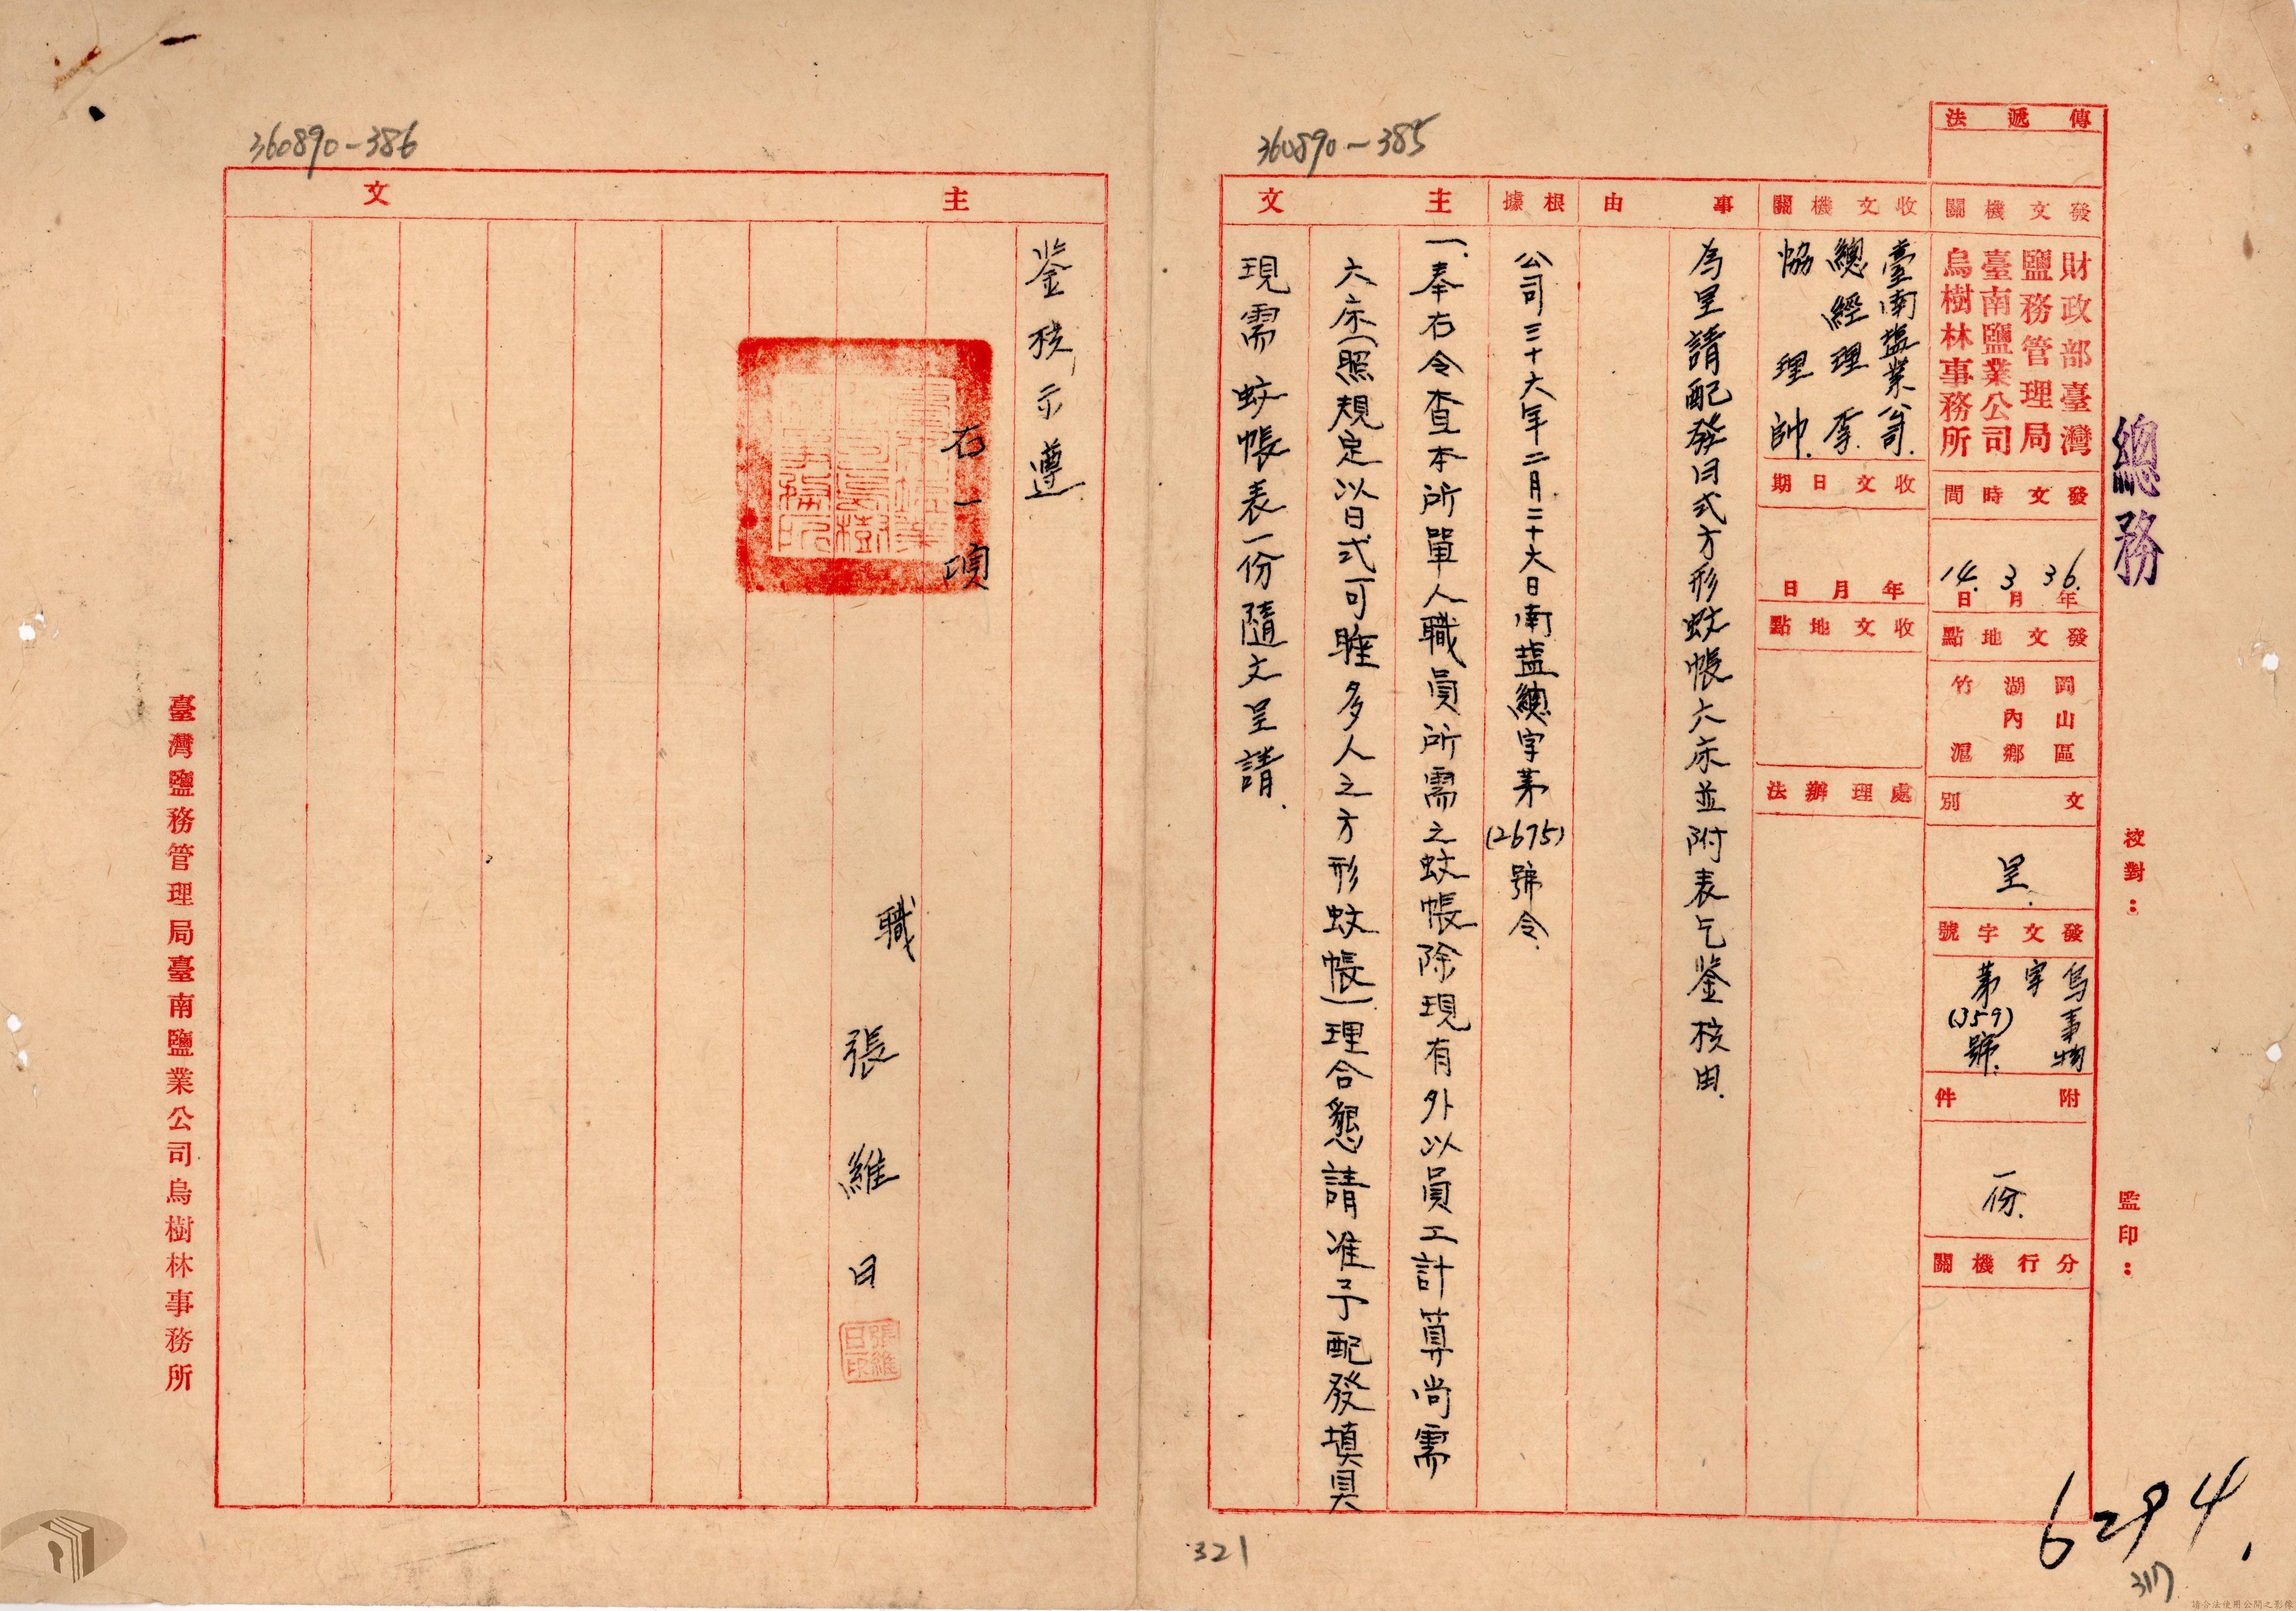 360890-385
總務
校對：
監印：
傳遞法
發文機關
財政部臺灣
鹽務管理局
臺南鹽業公司
烏樹林事務所
發文時間
36年3月14日
發文地點
岡山區
湖內鄉
竹滬
文別
呈
發文字號
烏事物
字
第(359)號
附件
一份
分行機關
收文機關
臺南塩業公司
總經理李
協理帥
收文日期
年月日
收文地點
處理辦法
事由
為呈請配發日式方形蚊帳六床並附表乞鉴核由
根據
公司三十六年二月二十六日南塩總字第(2675)號令
主文
一、奉右令查本所單人職員所需之蚊帳除現有外以員工計算尚需
六床(照規定以日式可睡多人之方形蚊帳)理合懇請准予配發填具
現需蚊帳表一份隨文呈請
6294
317
321
360890-386
主文
鉴核示遵
右一項
職
張維日
張維日印
臺灣鹽務管理局臺南鹽業公司烏樹林事務所
請合法使用公開之影像